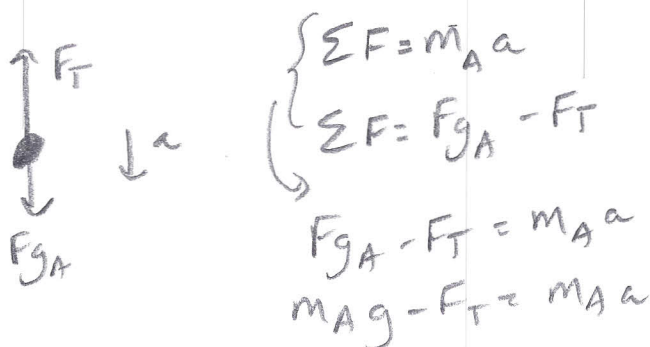 F_T
a
F_gA
ΣF = m_A a
ΣF = F_gA - F_T
F_gA - F_T = m_A a
m_A g - F_T = m_A a